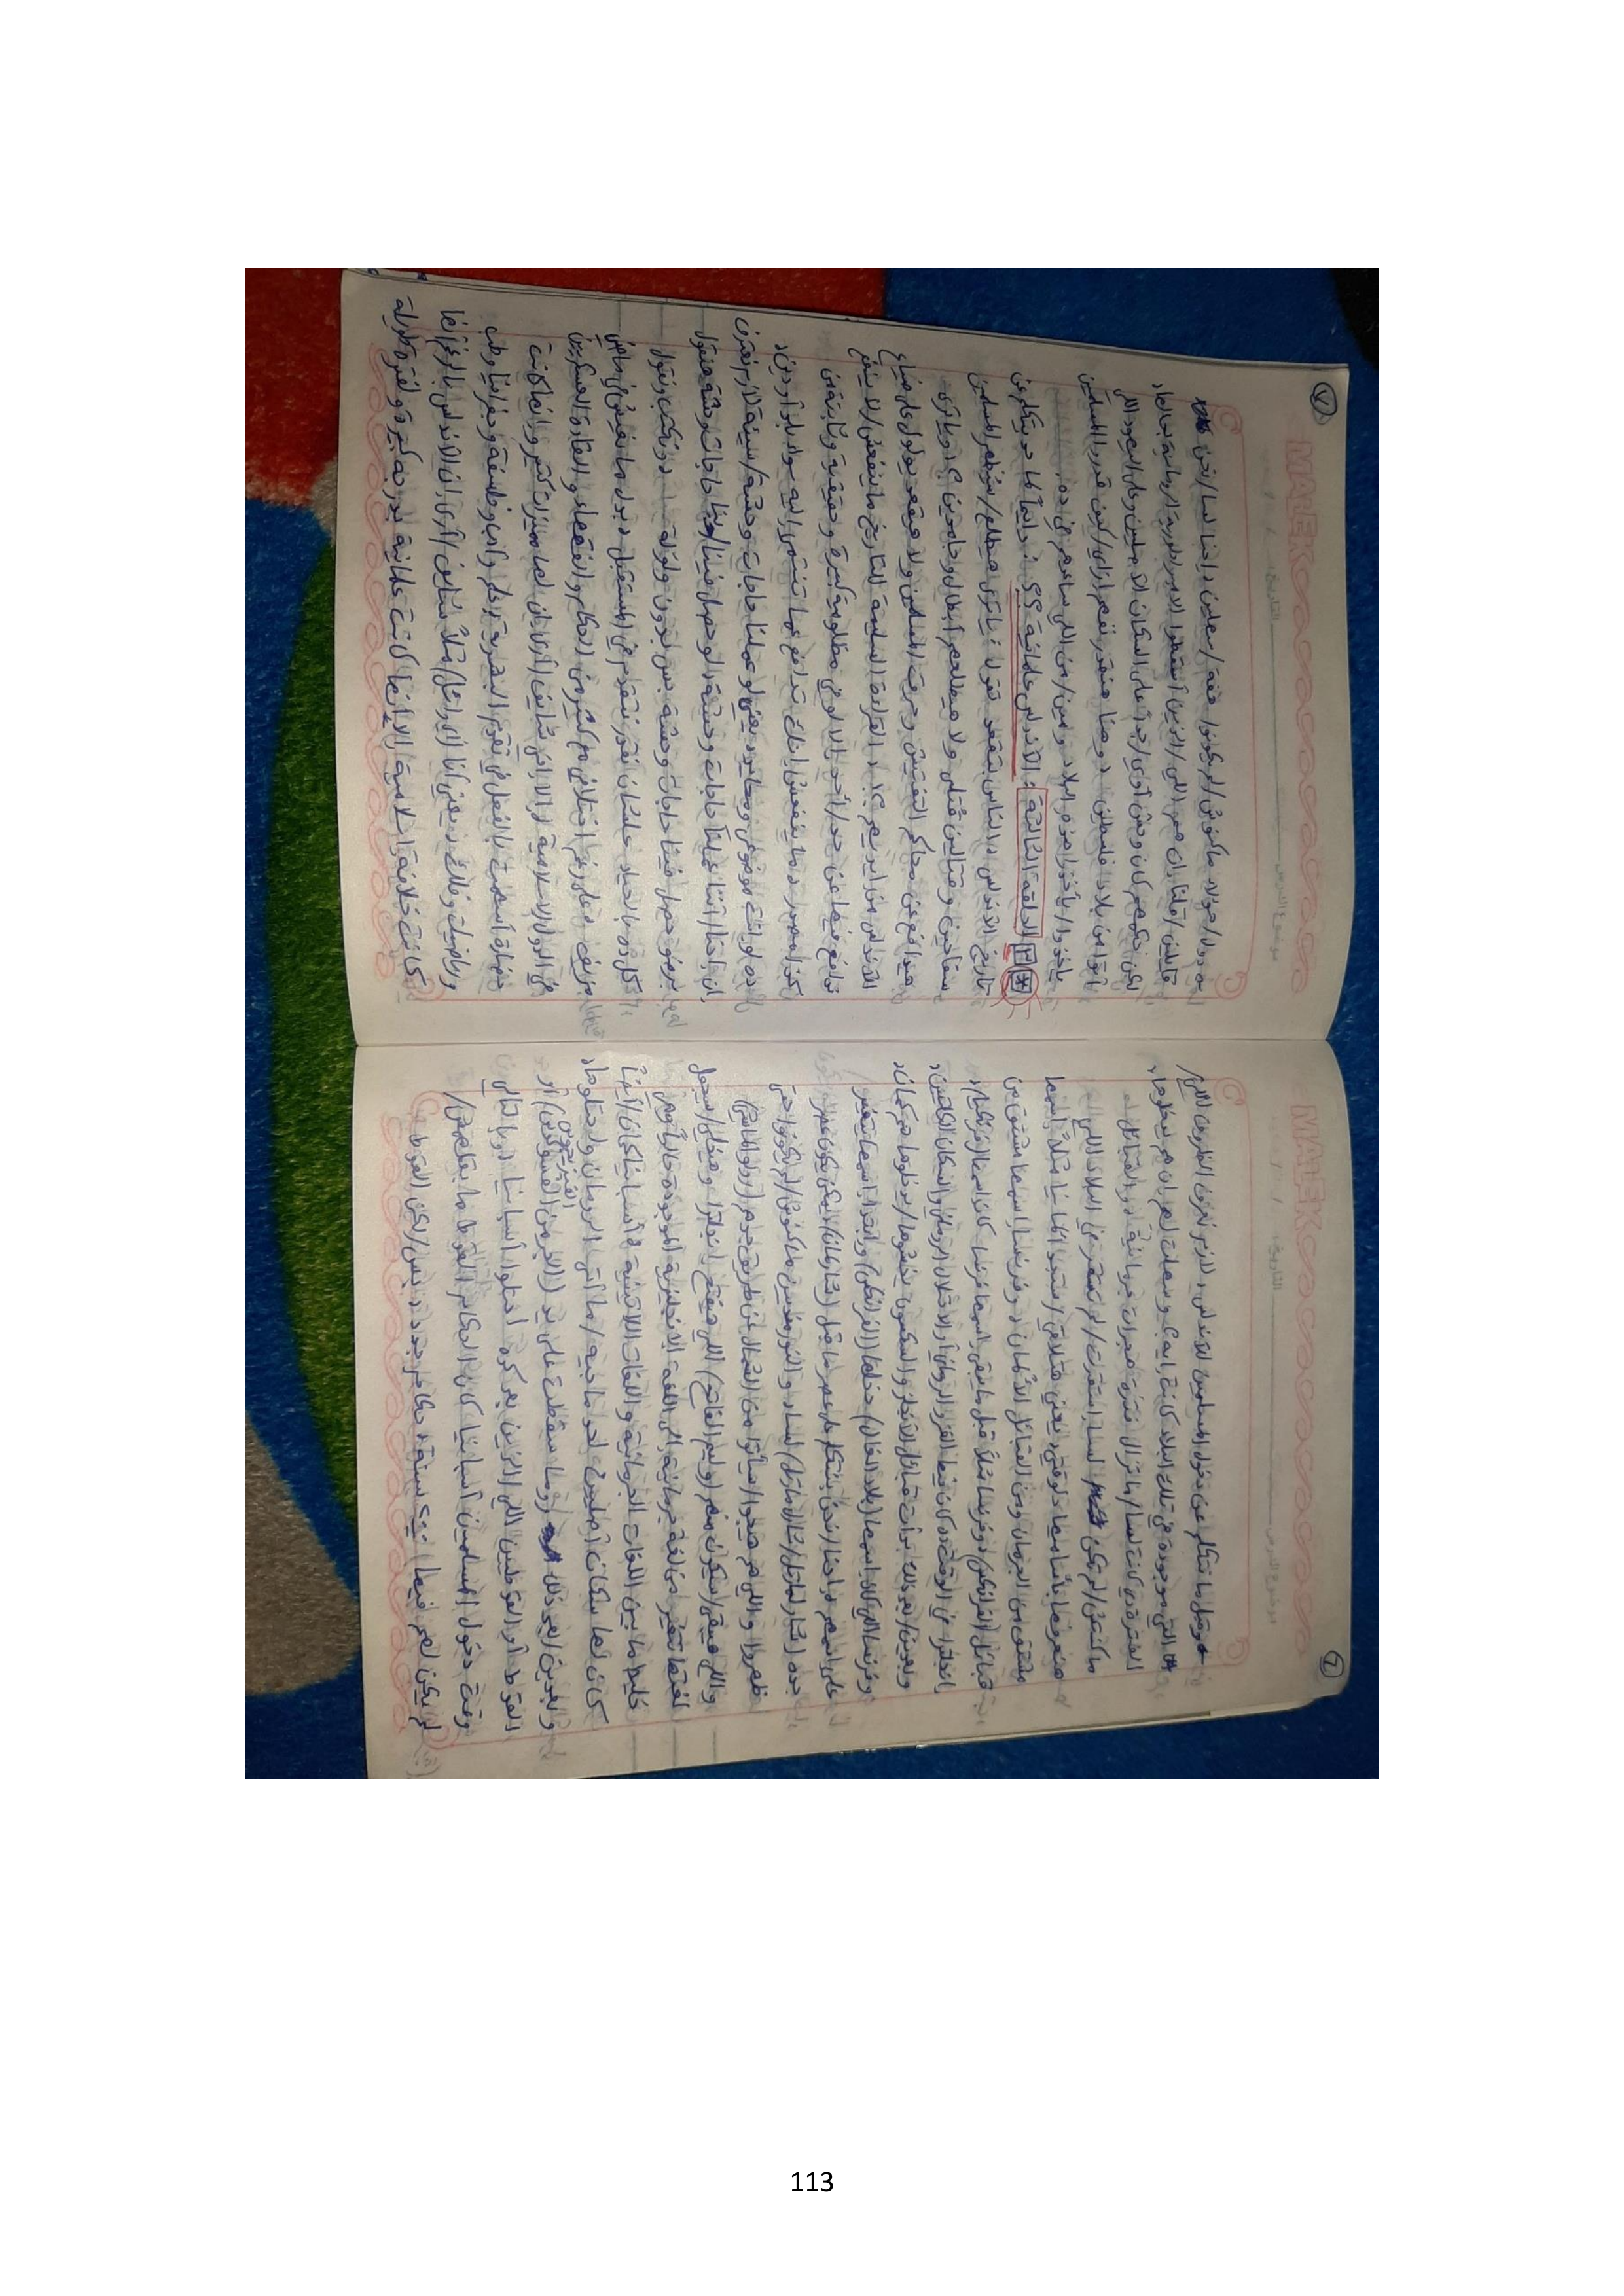 MAEK
موضوع الدرس: التاريخ:
٦
وقبل ما نتكلم عن دخول المسلمين للأندلس، لازم نعرف الظروف اللي/
التي موجودة في تلك البلاد كانت ايه؟ وسهلت لهم ان هم يدخلوها،
الفترة دي كانت لسا/ماتزال فترة هجرات جرمانية، دول القبائل
ماكنتش/لم تكن لسا استقرت/لم تستقر في البلاد اللي
هنعرفها بأساميها دلوقتي، يعني هتلاقي/ستجد ألمانيا مثلاً إسمها
مشتق من الجرمان ومن القبائل الألمان، وفرنسا إسمها مشتق من
قبائل الفرانكس، وفرنسا مثلاً قبل ما يبقى اسمها فرنسا كان اسمها
انجلترا في الوقت ده كان فيها الرومان والسكان الكلتيين،
وبعدين/بعد ذلك بدأت قبائل الأنجلو والسكسون يخشوها/يدخلوها هي كمان،
وفرنسا اللي كان اسمها (بلاد الغال) دخلها (الفرانكس) وابتدا اسمها يتغير
على اسمهم، احنا/نحن بنتكلم على عصر ما قبل (شارلمان)/يمكن يكون عصر
جده (شارل مارتل)/لسا، والنورمنديين ماكنوش/لم يكونوا حتى
ظهروا واللي هم هيجوا/سيأتوا من الشمال عن طريق
واللي هيبقى/سيكون منهم (وليم الفاتح) اللي هيفتح انجلترا وهيخلي/سيجعل
لغتها تتغير من لغة جرمانية إلى اللغة الانجليزية الموجودة حالياً وهي
خليط ما بين اللغات الجرمانية واللغات اللاتينية، أسبانيا كمان/أيضاً
كان لها سكان أصليين لحد ما جيه/ما أتى الرومان واحتلوها،
وبعدين/بعد ذلك روما سقطت على يد (الجرمن القوط الغربيون) أو
القوط أو القوطيين اللي/الذين بعد كده احتلوا أسبانيا، وبالتالي
وقت دخول المسلمين أسبانيا كان الحكام القوط ما بقلهمش/
لم يكن لهم فيها ستة حكام جدد، بس/لكن القوط
MAEK
موضوع الدرس: التاريخ:
٧
دول/هؤلاء ماكنوش/لم يكونوا، احنا لسا/نحن
قايلين/قلنا ان هم اللي/الذين أسقطوا الامبراطورية الرومانية
لكن حكمهم كان وحش أوي/جداً على السكان الأصليين وعلى اليهود اللي
أتوا من بلاد فلسطين، وهنا هنقدر نفهم ازاي/كيف قدروا المسلمين
ياخدوا/يأخذوا هذه البلاد ومين/من اللي ساعدهم في ده.
* ٣ الحلقة الثالثة: الأندلس علمانية ؟؟: دايماً لما حد يتكلم عن
تاريخ الأندلس، الناس بتقعد تقول: يا ترى هيطلع/سيُظهر المسلمين
سفاحين وقتالين قُتلى ولا هيطلعهم أبطال وجامدين؟، ويا ترى
هيدافع عن محاكم التفتيش وحرق المسلمين ولا هيقعد يولول على ضياع
الأندلس من ايديهم؟!، القراءة السليمة للتاريخ ما ينفعش/لا ينفع
تدافع فيها عن حد/أحد إلا لو في مظلومية كبيرة وحقيقية وثابتة من
كذا مصدر، ما ينفعش انك تدافع عما تنتمي إليه سواء بلد أو دين،
ده لو انت موضوعي ومحايد، يعني لو عملنا حاجات وحشة/سيئة لازم نعترف
ان احنا/أننا عملنا حاجات وحشة، ولو حصل فينا/بنا حاجات وحشة هنقول
برضو حصل فينا حاجات وحشة بس بدون ولولة، ونكتب ونقول
كل ده بالحياد علشان نقدر نتقدم في المستقبل بدل ما نعيش في ماضي
مزيف، على رغم اختلافي مع كثير من الحكام والفقهاء والقادة العسكريين
في الدول الإسلامية إلا إني شايف/أرى ان لها مميزات كتير وانها كانت
حضارة أسهمت بالفعل في تقدم البشرية، علم وأدب وفلسفة وجغرافيا وطب
ورياضيات وفلك، يعني أنا رأيي/مثلاً شايف/أرى ان الأندلس بالرغم انها
كانت خلافة اسلامية إلا إنها كانت علمانية بدرجة كبيرة ولفترة طويلة
113